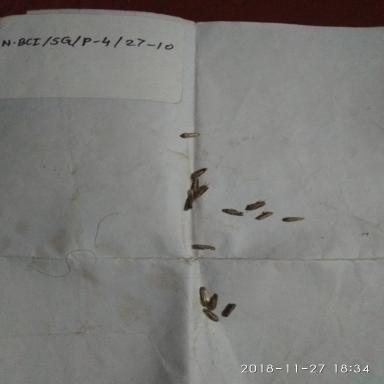 N.BCI/SG/P-4/27-10
2018-11-27 18:34